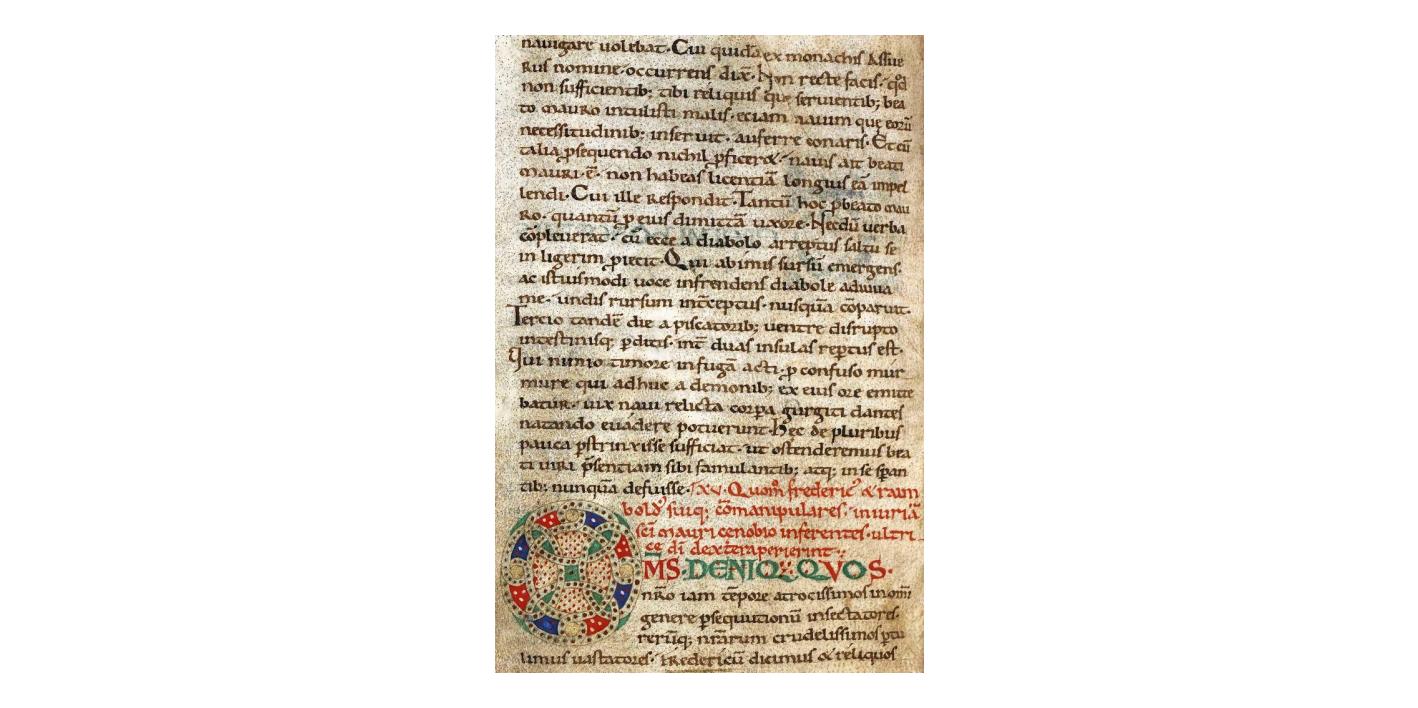 nauigare uolebat. Cui quidā ex monachis Assue
rus nomine. occurrens dix̄. Non recte facis. qd̄
non sufficientib; tibi reliquis que seruientib; bea
to mauro intulisti malis. eciam nauim quę eorū
necessitudinib; inseruit. auferre conaris. Et cū
talia psequendo nichil pficeret. nauis ait beati
mauri. ē. non habeas licentiā longius eā impel
lendi. Cui ille respondit. Tantū hoc p beato mau
ro. quantū p eius dimittā uxore. Necdū uerba
cōpleuerat. cū ecce a diabolo arreptus saltu se
in ligerim piecit. Qui ab imis sursū emergens.
ac istiusmodi uoce infrendens diabole adiuua
me. undis rursum int̄ceptus. nusquā cōparuit.
Tercio tandē die a piscatorib; uentre disrupto
intestinisq; pditis. int̄ duas insulas reptus est.
Qui nimio timore in fugā acti. p confuso mur
mure qui adhuc a demonib; ex eius ore emitte
batur. uix naui relicta corpa gurgiti dantes
natando euadere potuerunt. Hec de pluribus
pauca pstrinxisse sufficiat. ut ostenderemus bea
ti uiri psentiam sibi famulantib; atq; in se span
tib; nunquā defuisse. xv. Quom̄ frederic' & raim
bold' suiq; cōmanipulares. iniuriā
sc̄i mauri cenobio inferentes. ultri
ce dī dextera perierint.
OMS. DENIQ; QVOS.
nr̄o iam tēpore atrocissimos in om̄i
genere psequutionū insectatores.
rerūq; nrārum crudelissimos ptu
limus uastatores. Fredericū dicimus & reliquos